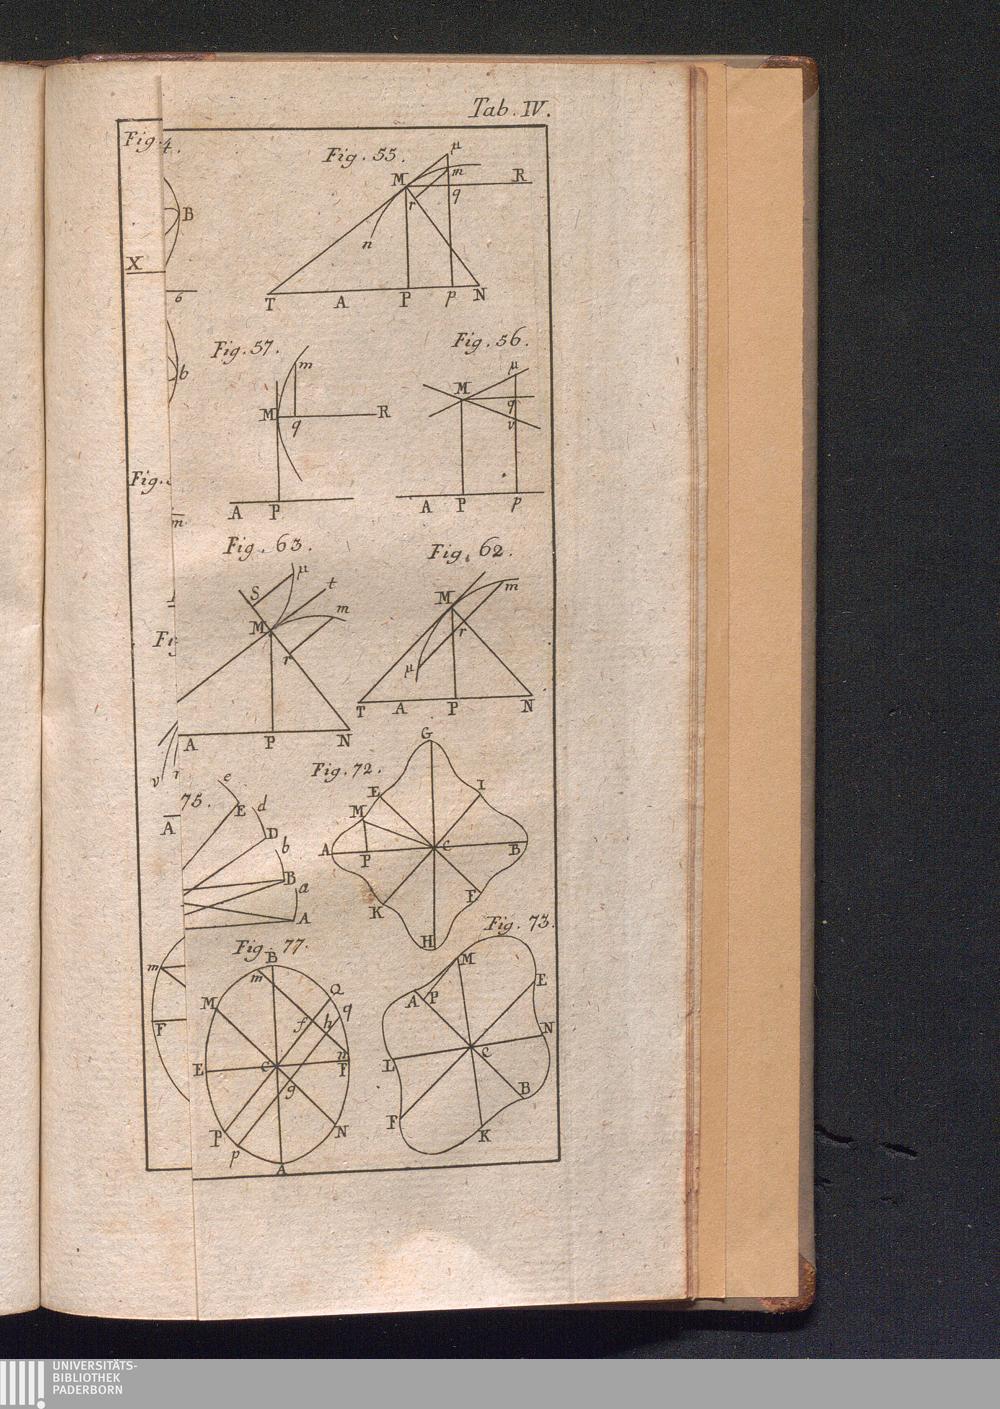 Tab. IV.
Fig. 4.
B
X
6
b
Fig.
m
Fig. 55.
μ
M
m
R
r
q
n
T A P p N
Fig. 57.
m
M
q
R
A P
Fig. 56.
μ
M
q
ν
A P p
Fig. 63.
μ
S
t
M
m
r
A P N
ν
Fig. 62.
M
m
r
μ
T A P N
75.
e
E
d
D
b
B
a
A
A
Fig. 72.
G
E
I
M
A P C B
K
F
H
m
F
Fig. 77.
B
m
Q
M
q
f h
n
E C F
g
P
N
p
A
Fig. 73.
M
A P
E
N
C
L
B
F
K
UNIVERSITÄTS-
BIBLIOTHEK
PADERBORN